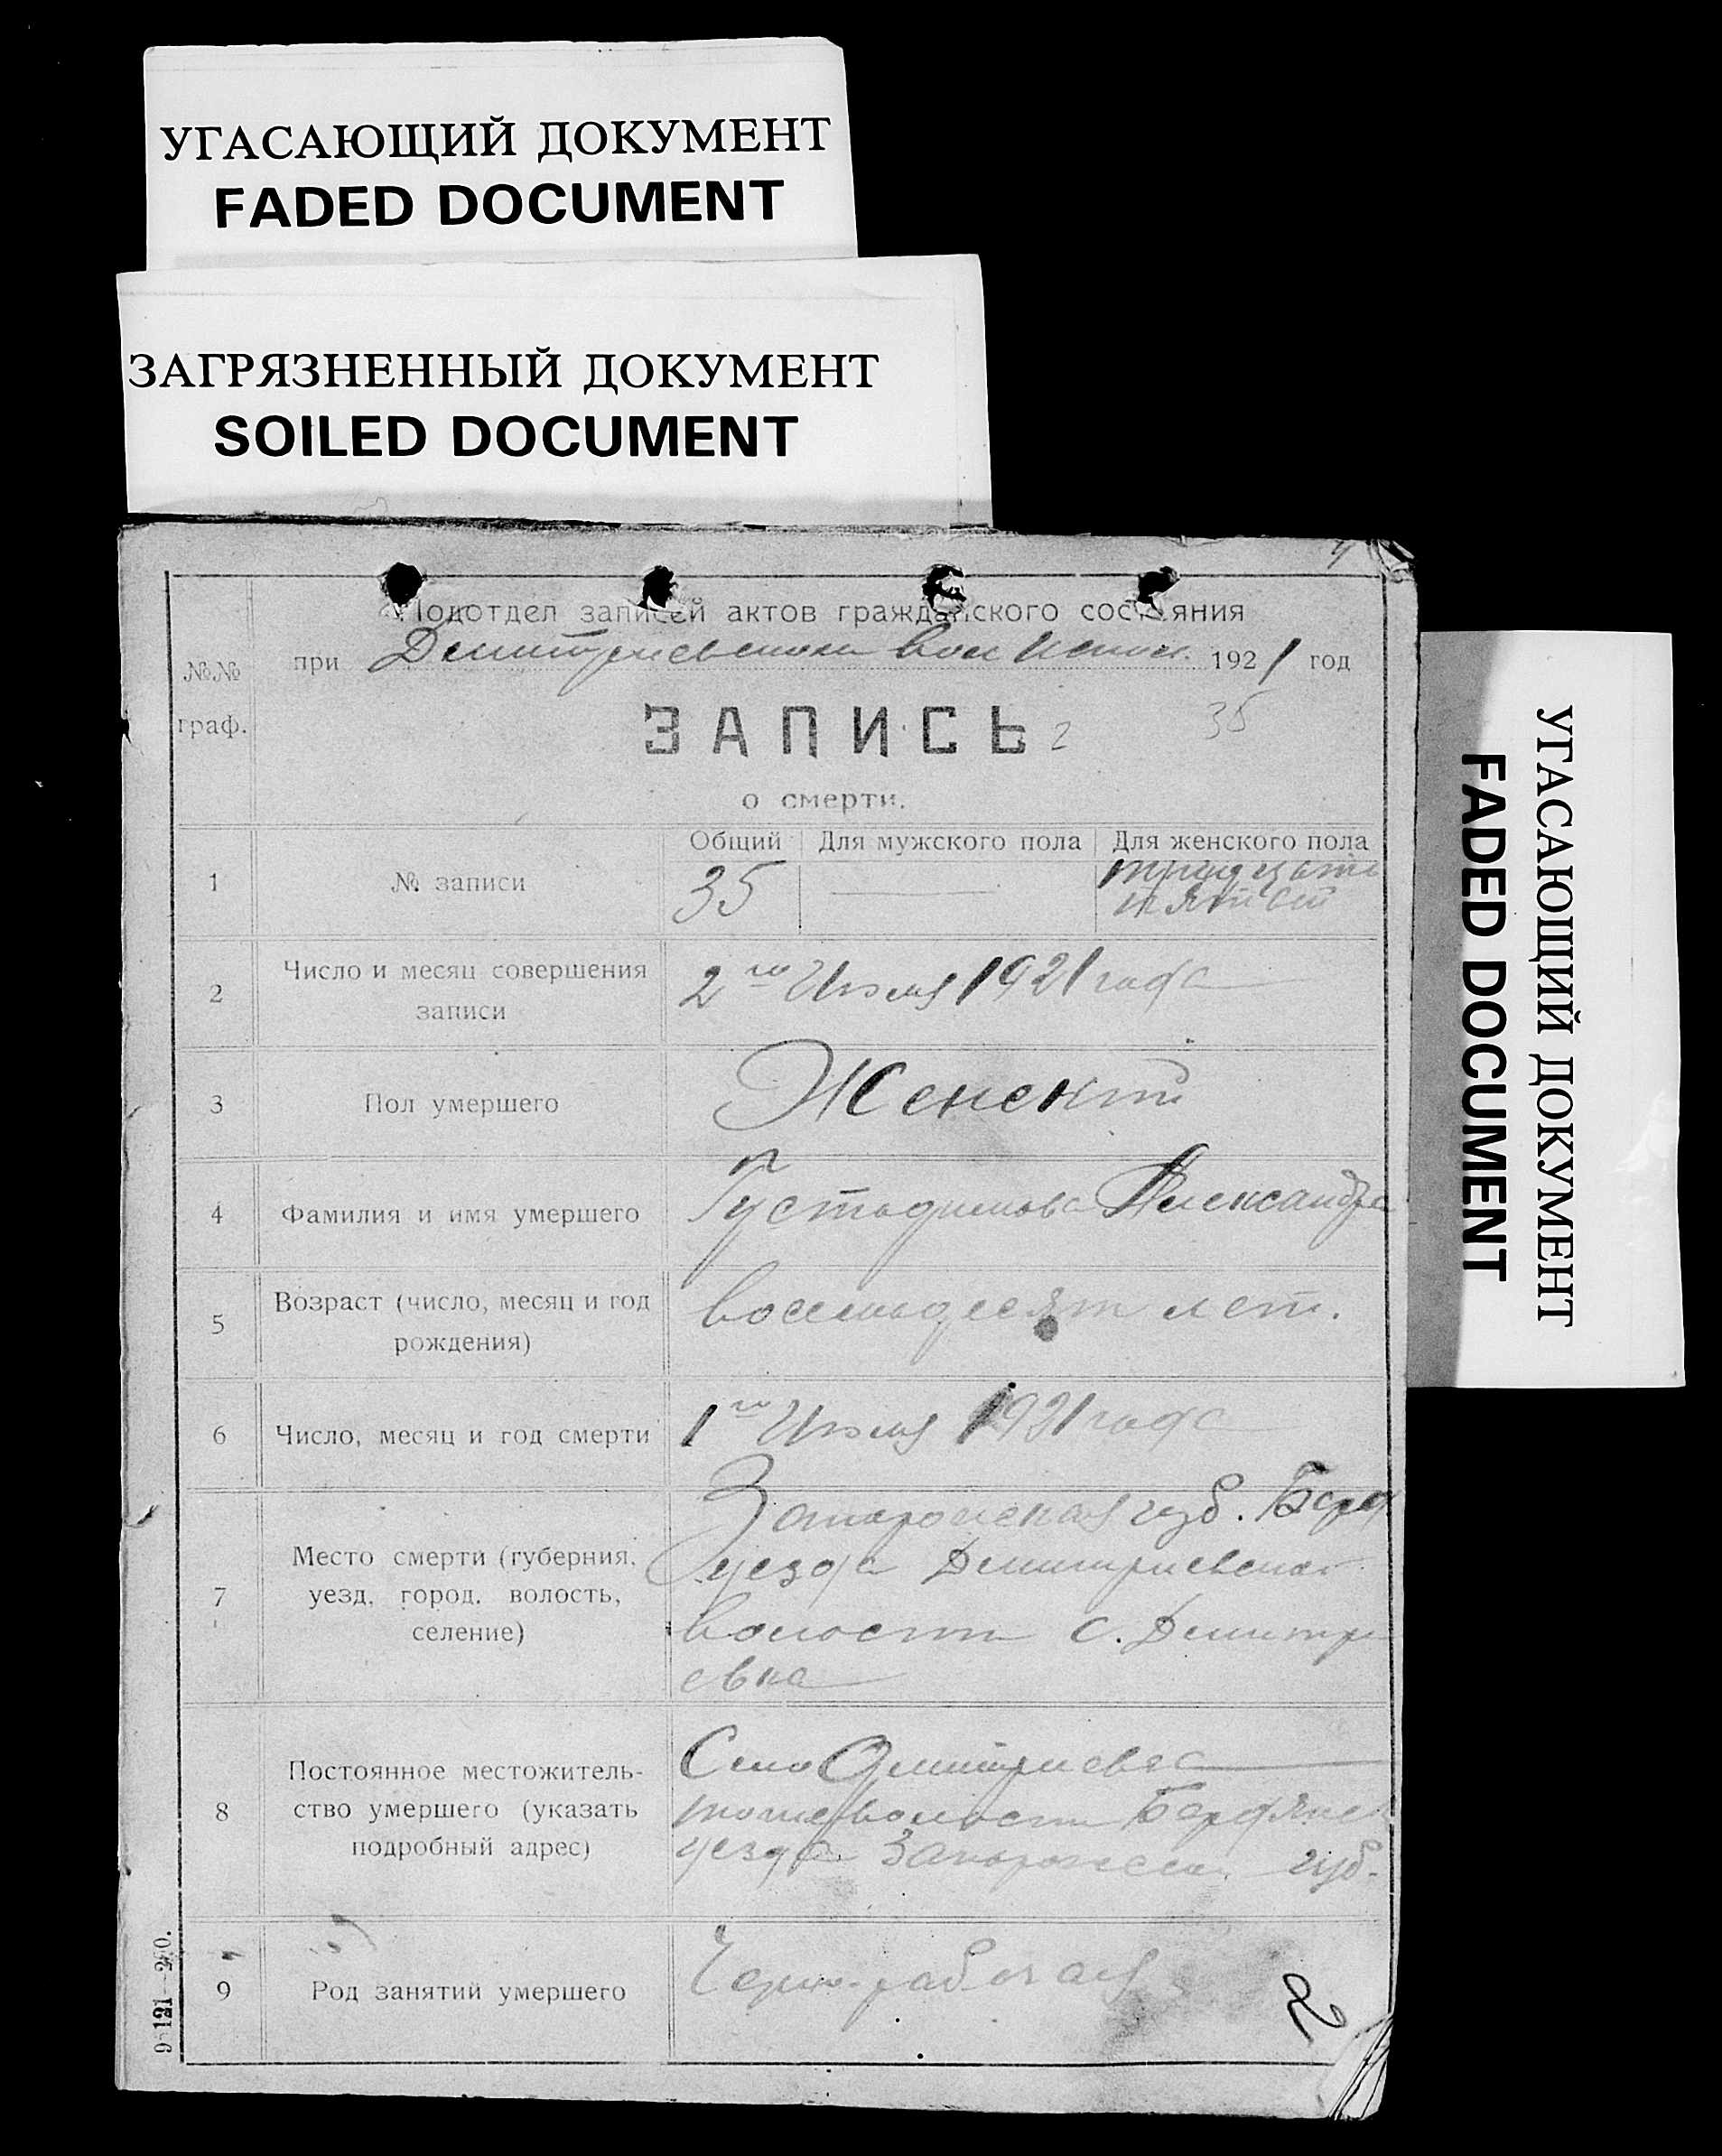 УГАСАЮЩИЙ ДОКУМЕНТ
FADED DOCUMENT
ЗАГРЯЗНЕННЫЙ ДОКУМЕНТ
SOILED DOCUMENT
УГАСАЮЩИЙ ДОКУМЕНТ
FADED DOCUMENT
Подотдел записей актов гражданского состояния
при Дмитриевском Вол 1921 год
№№ граф.
ЗАПИСЬ 2
35
о смерти.
Общий Для мужского пола Для женского пола
1 № записи 35 — тридцать
пятый
2 Число и месяц совершения
записи
2го Июля 1921 года
3 Пол умершего Женский
4 Фамилия и имя умершего Александра
5 Возраст (число, месяц и год
рождения)
восемьдесят лет.
6 Число, месяц и год смерти 1го Июля 1921 года
7 Место смерти (губерния,
уезд, город, волость,
селение)
Запорожская губ. Берд
уезда Дмитриевская
волости с. Дмитри
евка
8 Постоянное местожитель-
ство умершего (указать
подробный адрес)
Село Дмитриевка
тоже волости Бердянск
уезда Запорожской губ.
9 Род занятий умершего Черно-рабочая
2